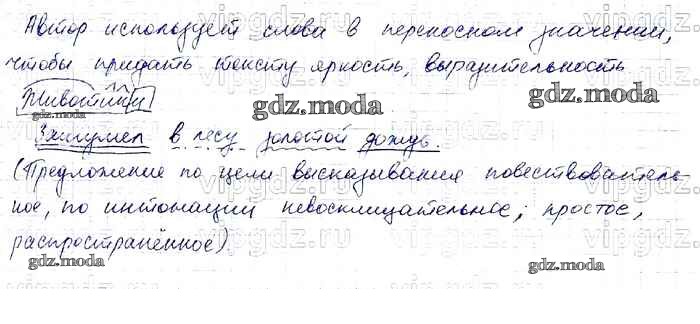 Автор использует слова в переносном значении,
чтобы придать тексту яркость, выразительность
Животики
gdz.moda gdz.moda
Зашумел в лесу золотой дождь.
(Предложение по цели высказывания повествователь-
ное, по интонации невосклицательное; простое,
распространённое).
gdz.moda gdz.moda
vipgdz.ru